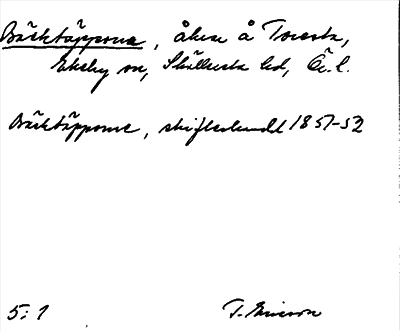 Bäcktäpporna, åker å Toresta,
Ekeby sn, Skyllersta hd, Ör. l.
Bäcktäpporne, skifteshandl 1851-52
5:1 T. Ericson